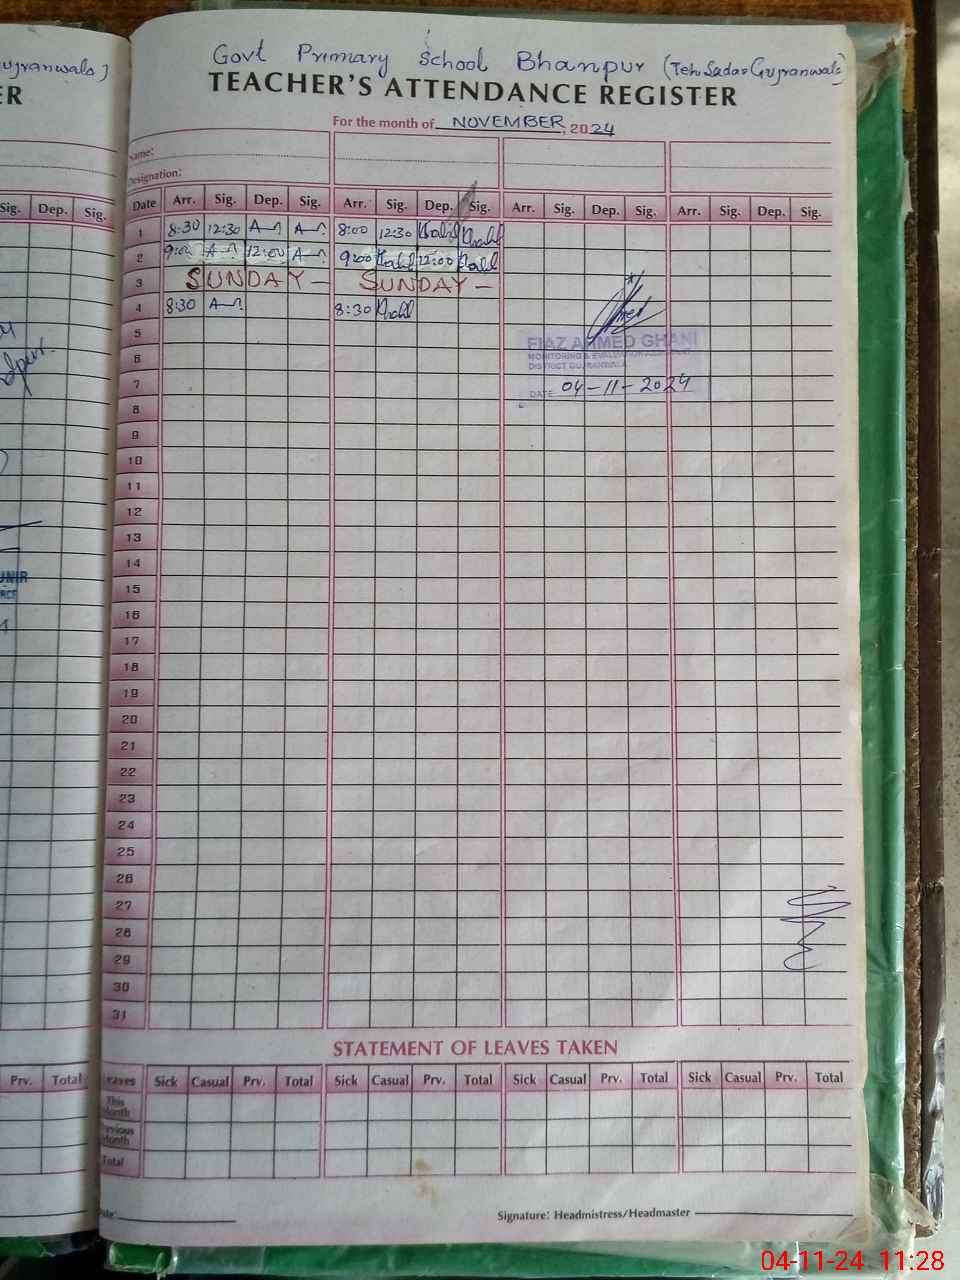 ujranwala)
Govt Primary School Bhanpur (Teh. Sadar Gujranwala)
ER
TEACHER'S ATTENDANCE REGISTER
For the month of NOVEMBER, 2024
Name:
Designation:
Sig. Dep. Sig.
Date Arr. Sig. Dep. Sig. Arr. Sig. Dep. Sig. Arr. Sig. Dep. Sig. Arr. Sig. Dep. Sig.
1 8:30 12:30 8:00 12:30
2 9:00 12:00 9:00 12:00
3 SUNDAY — SUNDAY —
4 8:30 8:30
5
FIAZ AHMED GHANI
6
MONITORING & EVALUATION ASSISTANT
DISTRICT GUJRANWALA
7
DATE 04-11-2024
8
9
10
11
12
13
14
15
16
17
18
19
20
21
22
23
24
25
26
27
28
29
30
31
STATEMENT OF LEAVES TAKEN
Prv. Total
Leaves Sick Casual Prv. Total Sick Casual Prv. Total Sick Casual Prv. Total Sick Casual Prv. Total
This Month
Previous Month
Total
Signature: Headmistress/Headmaster
04-11-24 11:28